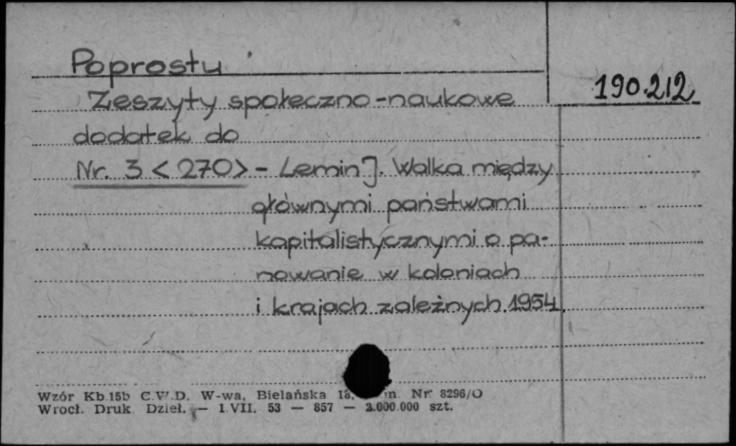 Poprostu
190.212
Zeszyty społeczno-naukowe
dodatek do
Nr. 3 < 270> - Lemin J. Walka między
głównymi państwami
kapitalistycznymi o pa-
nowanie w koloniach
i krajach zależnych. 1954.
Wzór Kb.15b C.W.D. W-wa, Bielańska 18, Nr 8296/O
Wrocł. Druk. Dzieł. — 1.VII. 53 — 857 — 2.000.000 szt.